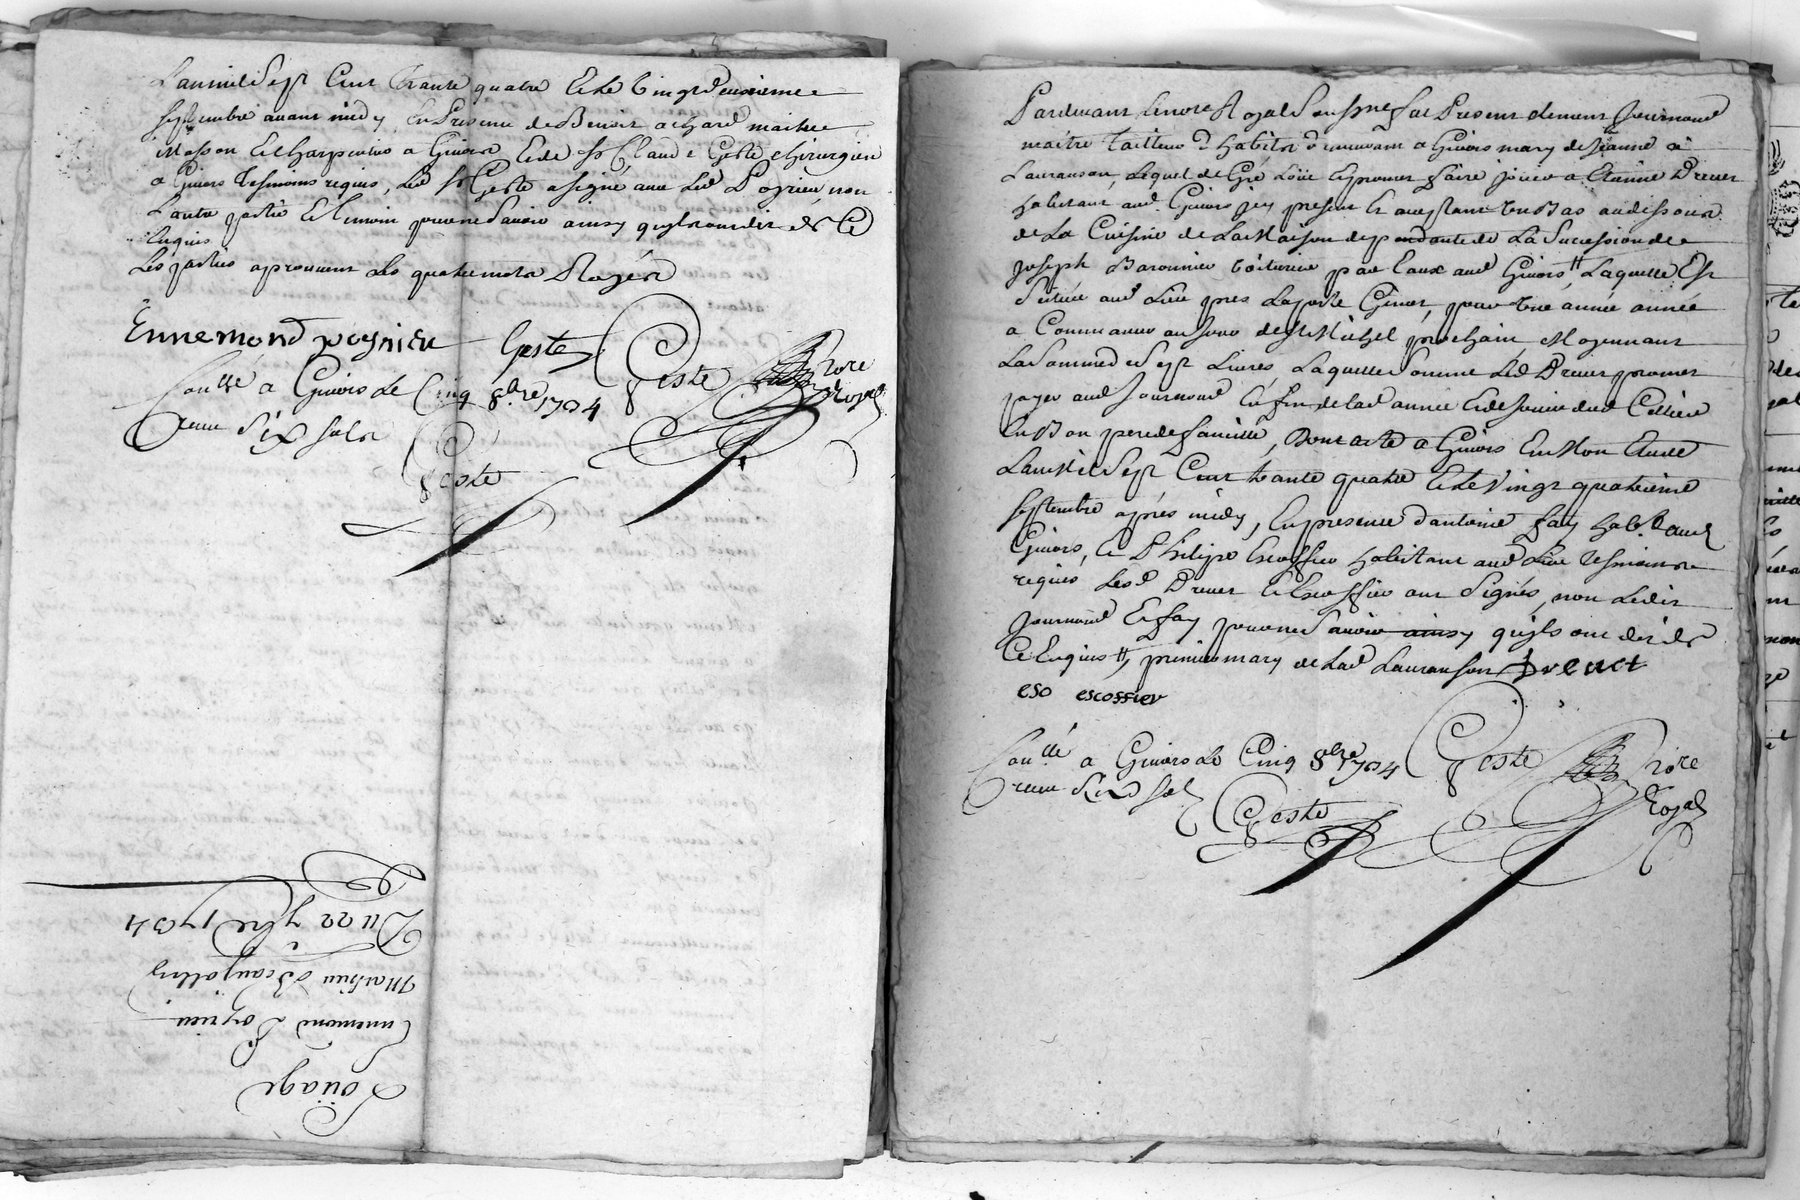 Lan mil Sept Cent trante quatre Et Le Vingt deuxieme
septembre avant midy, En Presence de Benoist achard maitre
Masson Et charpentier a Givors Et de Sr Claude Geste chirurgien
a Givors tesmoins requis, Led Sr Geste a signé avec Led Poyrieu, non
Lautre partie Et temoin pour ne Savoir ainsy quils ont dit de Ce
Enquis
Les parties aprouvent Les quatre mots Rayés
Ennemond poyrieu Geste Geste Nore Royal
Conllé a Givors Le Cinq 8bre 1734
Receu Six Sols
Geste
Du 22 7bre 1734
Mathieu Beaujollin
à
Ennemond Poyrieu
Loüage
Pardevant Le nore Royal Soussigné fut Present clement Journoud
maitre tailleur d'habits demeurant a Givors mary de Jeanne
Lauranson, Lequel de Gré Loüe Et promet faire jouir a Etienne Dreuet
habitant aud. Givors jcy present Et acceptant Un Bas au dessous
de La Cuisine de La Maison dependante de La Succession de
Joseph Baronnier Voiturier par Eaux aud Givors, Laquelle Est
Scituée aud Lieu pres La porte Givor, pour Une année année
a Commancer au jour de St Michel prochain Moyennant
La Somme de Sept Livres, Laquelle Somme Led Dreuet promet
payer aud Journoud En fin de lad année Et de Jouir dud Cellier
En Bon pere de famille, Dont acte a Givors En Mon Etude
Lan Mil Sept Cent trante quatre Et Le Vingt quatrieme
septembre aprés midy, En presence d'antoine fay habt. aud
Givors, Et Philipe Escoffier habitant aud Lieu tesmoins
requis Lesd Dreuet Et Escoffier ont Signés, non Ledit
Journoud Et fay pour ne Savoir ainsy quils ont dit de
Ce Enquis, premier mary de Lad Lauranson Dreuet
eso escoffier
Conllé a Givors Le Cinq 8bre 1734 Geste Nore
Receu Six Sols Geste Royal